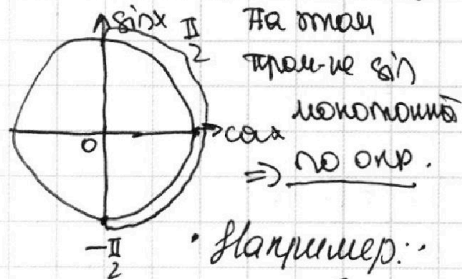 sinx
π/2
На этом
пром-ке sin
монотонный
0
cosx
⇒ по опр.
-π/2
• Например: